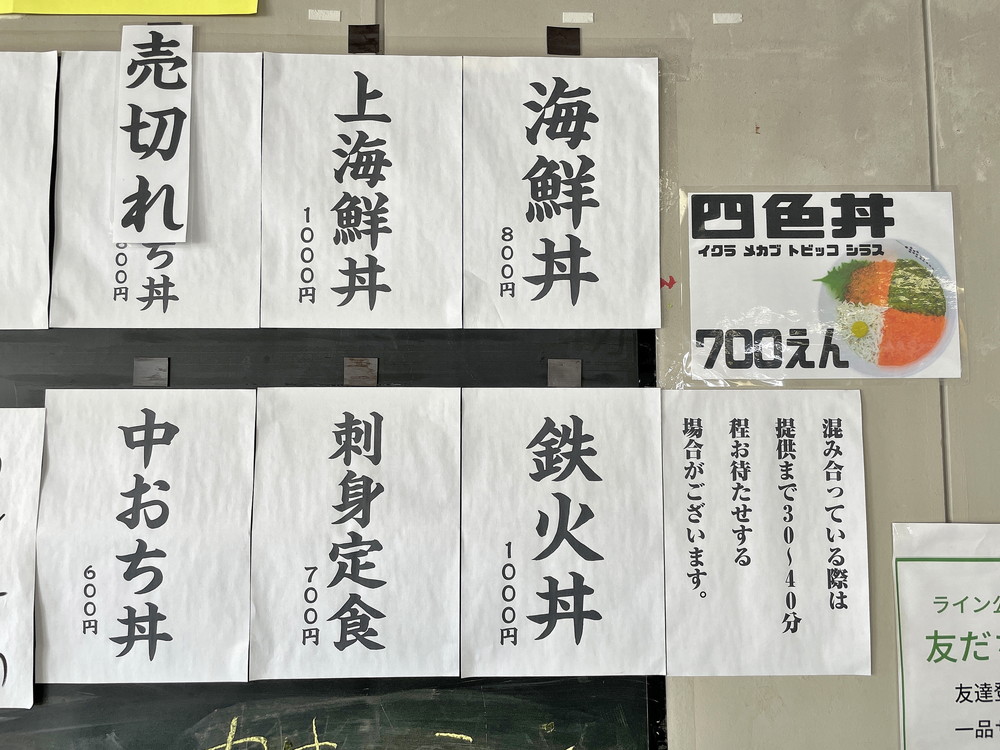 海鮮丼
800円
上海鮮丼
1000円
売切れ
ち丼
00円
四色丼
イクラ メカブ トビッコ シラス
700えん
鉄火丼
1000円
刺身定食
700円
中おち丼
600円
混み合っている際は
提供まで30〜40分
程お待たせする
場合がございます。
ライン
友だ
友達登
一品